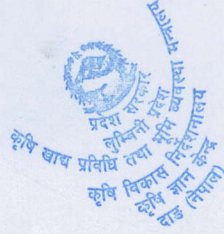 प्रदेश सरकार
लुम्बिनी प्रदेश
कृषि खाद्य प्रविधि तथा भूमि व्यवस्था मन्त्रालय
कृषि विकास निर्देशनालय
कृषि ज्ञान केन्द्र
दाङ (नेपाल)